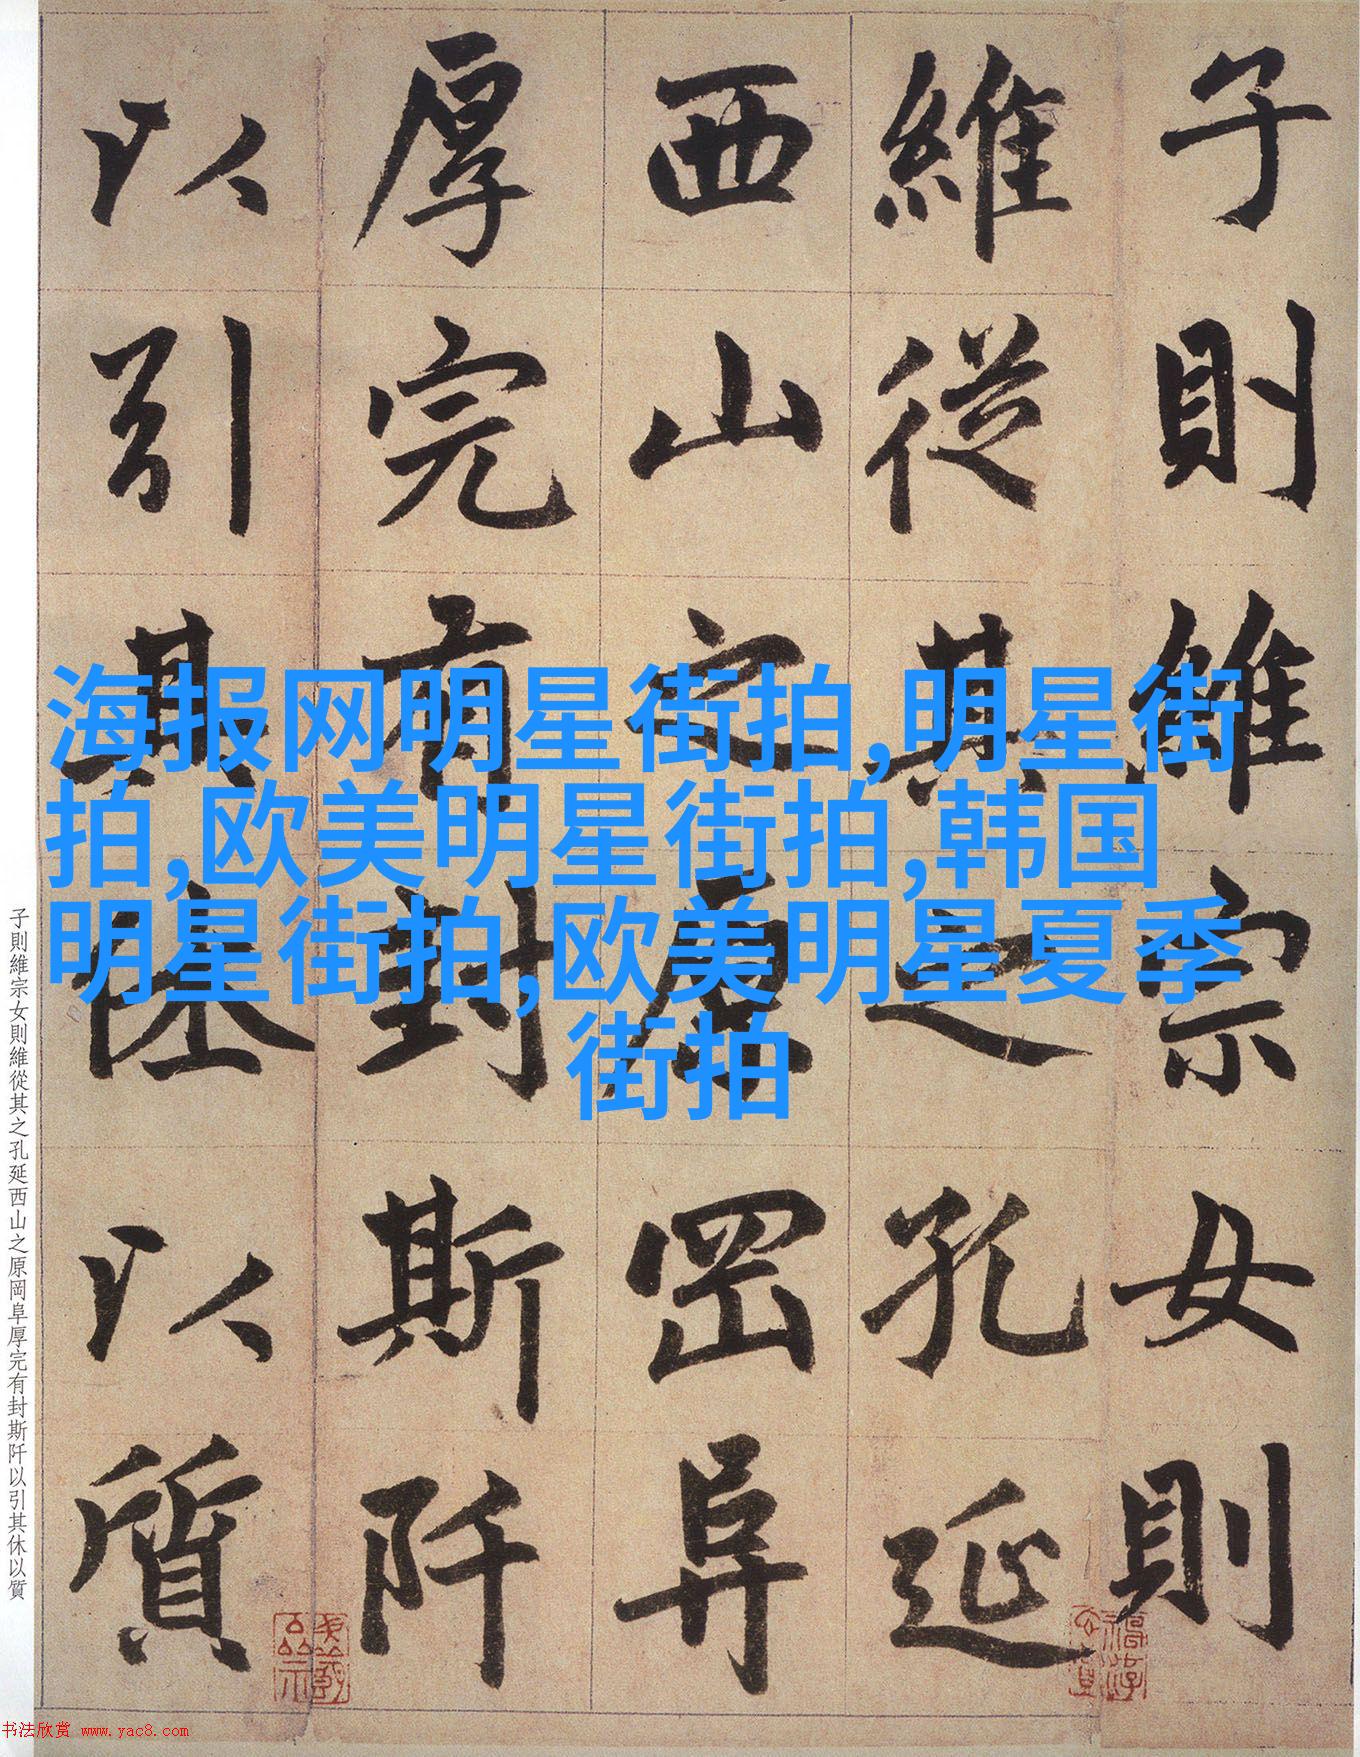 子則維宗女則
維從其之孔延
西山之原岡阜
厚完有封斯阡
以引其休以質
海报网明星街拍,明星街
拍,欧美明星街拍,韩国
明星街拍,欧美明星夏季
街拍
子則維宗女則維從其之孔延西山之原岡阜厚完有封斯阡以引其休以質
书法欣赏 www.yac8.com